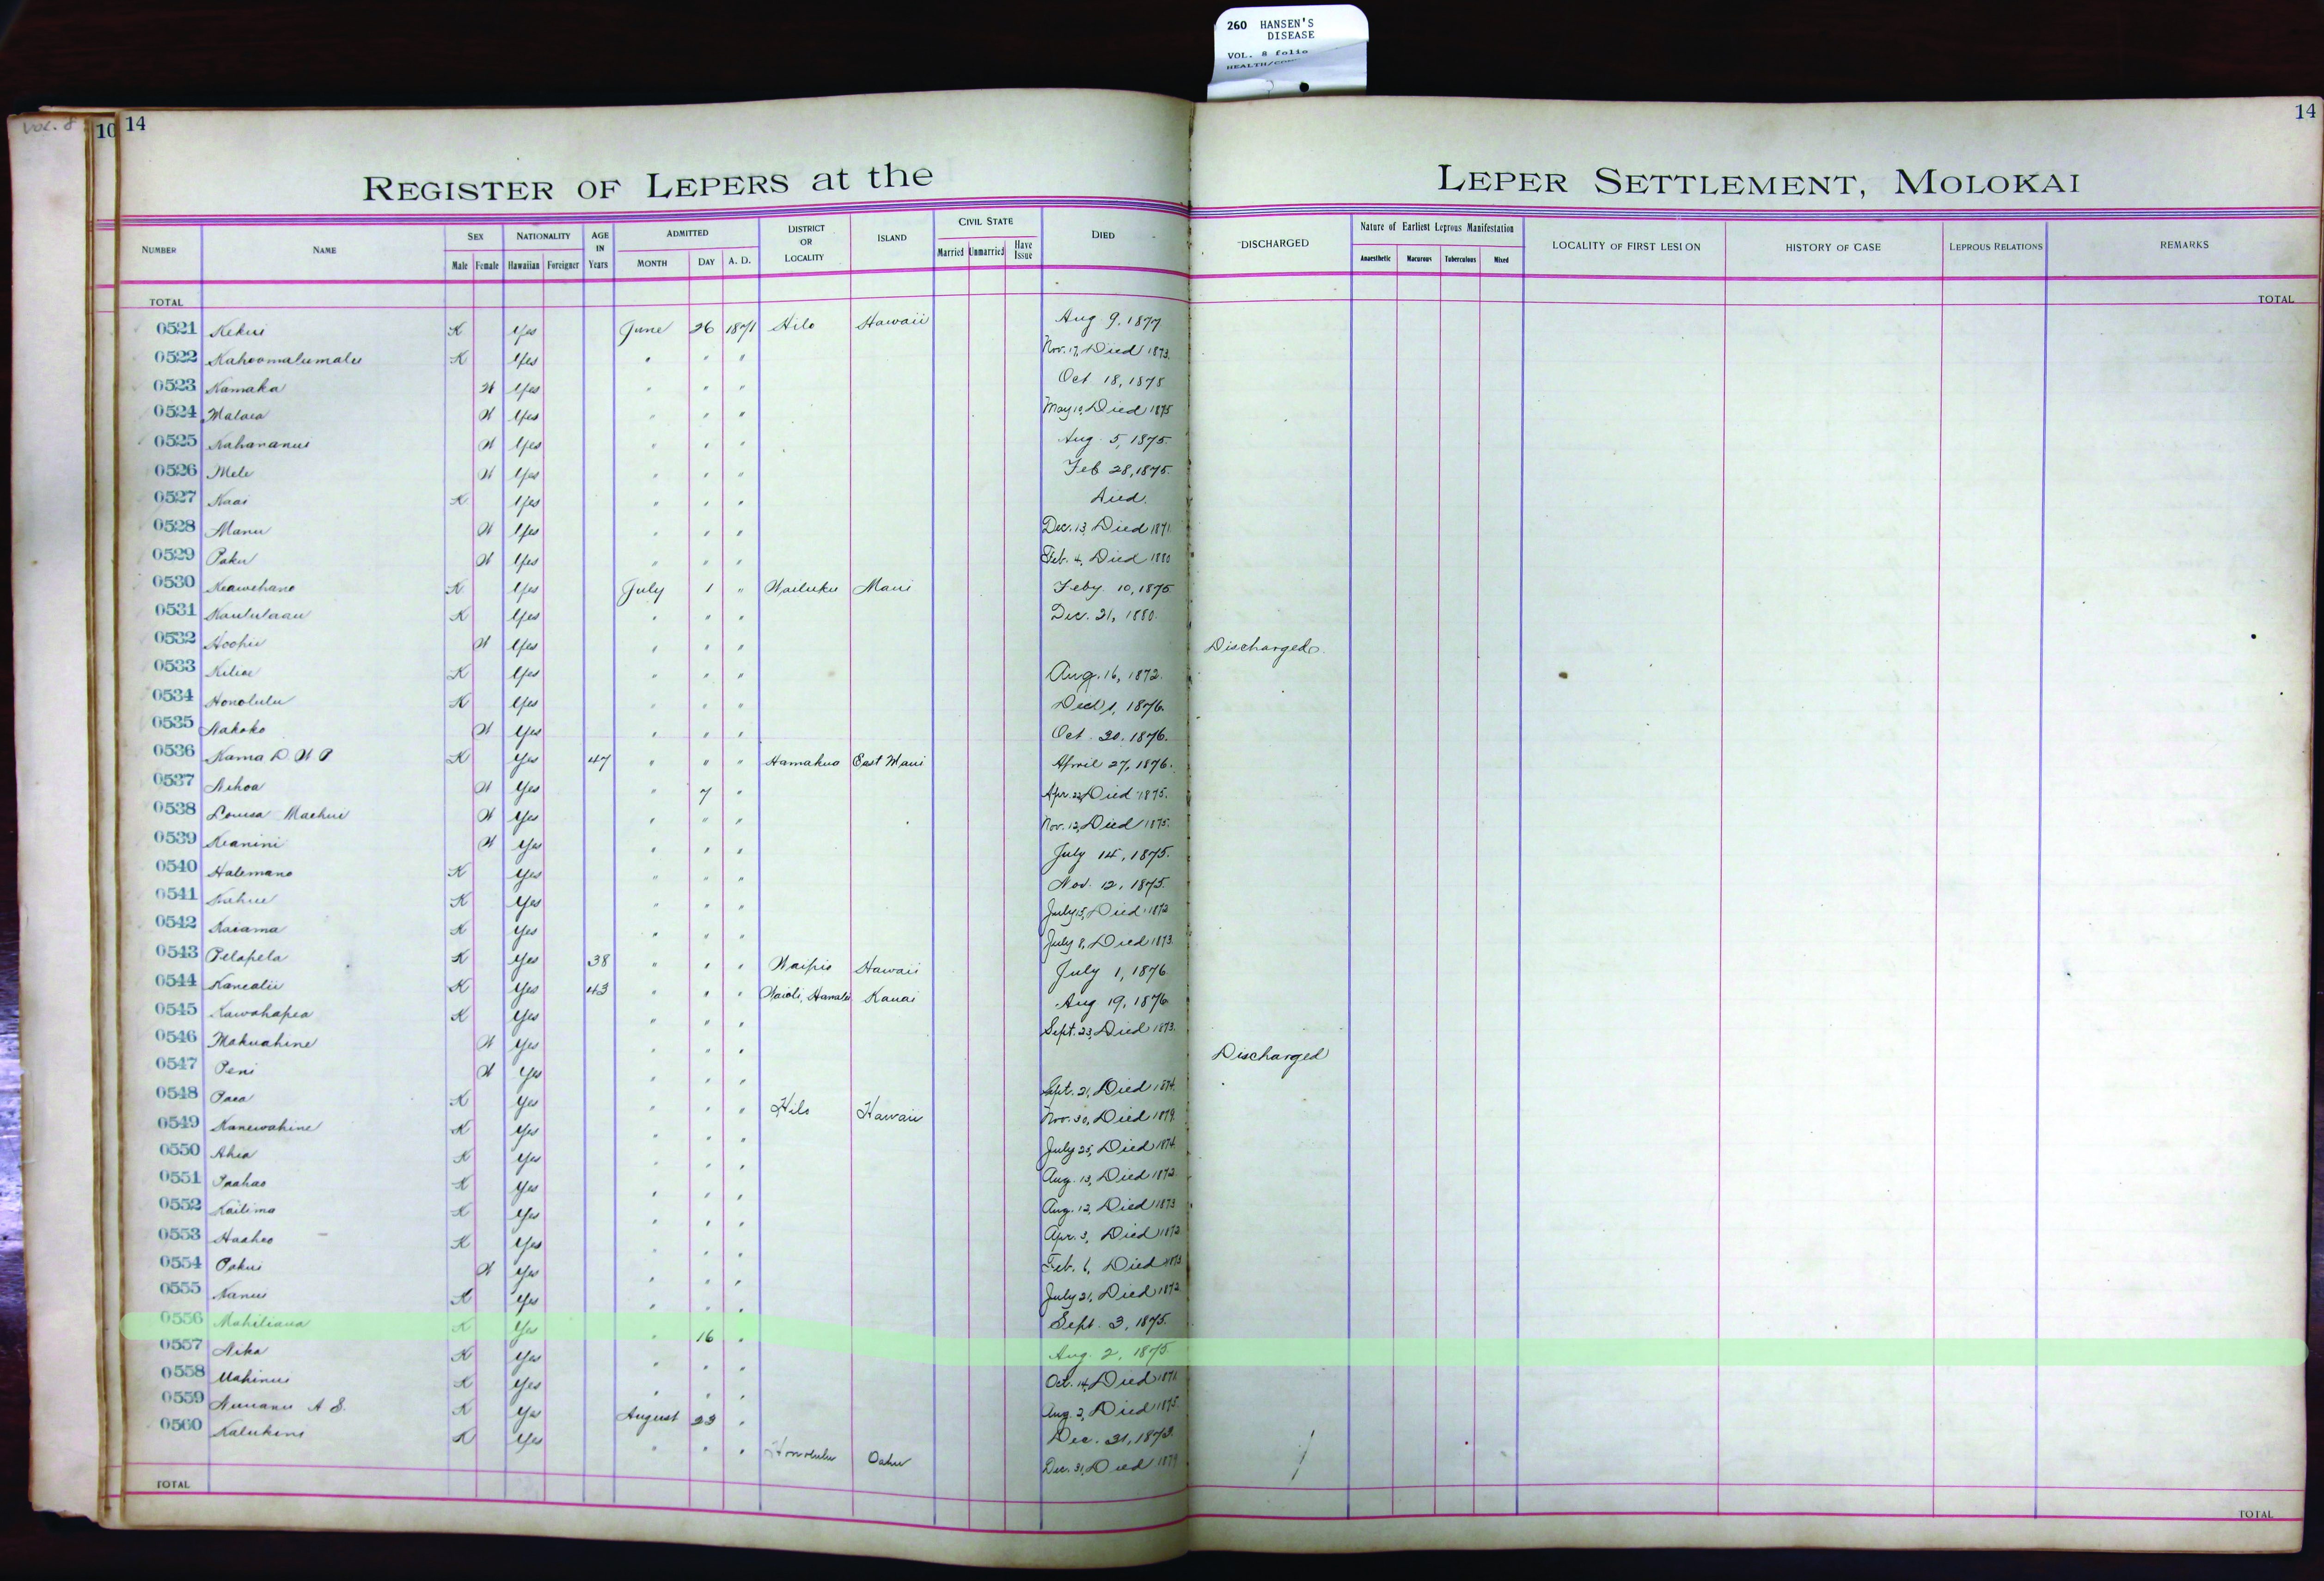 260 HANSEN'S
DISEASE
VOL. 8 folio
VOL. 8
10 14
14
REGISTER OF LEPERS at the LEPER SETTLEMENT, MOLOKAI
NUMBER NAME SEX NATIONALITY AGE IN Years ADMITTED DISTRICT OR LOCALITY ISLAND CIVIL STATE DIED DISCHARGED Nature of Earliest Leprous Manifestation LOCALITY OF FIRST LESION HISTORY OF CASE LEPROUS RELATIONS REMARKS
Male Female Hawaiian Foreigner MONTH DAY A. D. Married Unmarried Have Issue Anaesthetic Macurous Tuberculous Mixed
TOTAL TOTAL
0521 Kekui K Yes June 26 1871 Hilo Hawaii Aug 9, 1877
0522 Kahoomalumalu K Yes " " " Nov. 17, Died 1873.
0523 Kamaka W Yes " " " Oct 18, 1875
0524 Malaea W Yes " " " May 10, Died 1875
0525 Kahananui W Yes " " " Aug. 5, 1875.
0526 Mele W Yes " " " Feb 28, 1875.
0527 Kaai K Yes " " " Died.
0528 Manu W Yes " " " Dec. 13, Died 1871
0529 Paku W Yes " " " Feb. 4, Died 1880
0530 Keawehano K Yes July 1 " Wailuku Maui Feby 10, 1875
0531 Kaululaau K Yes " " " Dec. 21, 1880.
0532 Hoohii W Yes " " " Discharged
0533 Kiliae K Yes " " " Aug. 16, 1872.
0534 Honolulu K Yes " " " 1, 1876.
0535 Kakoko W Yes " " " Oct 20, 1876.
0536 Kama D. W P K Yes 47 " " " Hamakua East Maui April 27, 1876.
0537 Nihoa W Yes " 7 " Apr. 22, Died 1875.
0538 Louisa Maehui W Yes " " " Nov. 12, Died 1875.
0539 Keanini W Yes " " " July 14, 1875.
0540 Halemano K Yes " " " Nov. 12, 1875.
0541 Kahue K Yes " " " July 15, Died 1872
0542 Kaiama K Yes " " " July 8, Died 1873.
0543 Pelapela K Yes 38 " " " Waipio Hawaii July 1, 1876
0544 Kanealii K Yes 43 " " " Waioli, Hanalei Kauai Aug 19, 1876
0545 Kawahapea K Yes " " " Sept. 23, Died 1873.
0546 Makuahine W Yes " " " Discharged
0547 Peni W Yes " " " Sept. 21, Died 1874.
0548 Paea K Yes " " " Hilo Hawaii Nov. 30, Died 1879.
0549 Kanewahine K Yes " " " July 25, Died 1874.
0550 Ahia K Yes " " " Aug. 13, Died 1872.
0551 Paahao K Yes " " " Aug. 12, Died 1873
0552 Kailima K Yes " " " Apr. 3, Died 1872
0553 Haaheo K Yes " " " Feb. 6, Died 1873
0554 Pakui W Yes " " " July 21, Died 1872
0555 Nanui K Yes " " " Sept. 3, 1875.
0556 Mahiliaua K Yes " 16 " Aug. 2, 1875.
0557 Nika K Yes " " " Oct. 14, Died 1871
0558 Mahinui K Yes " " " Aug. 2, Died 1875.
0559 Nuuanu A S. K Yes August 23 " Dec. 31, 1873.
0560 Kalukini K Yes " " " Honolulu Oahu Dec. 31, Died 1879
TOTAL TOTAL